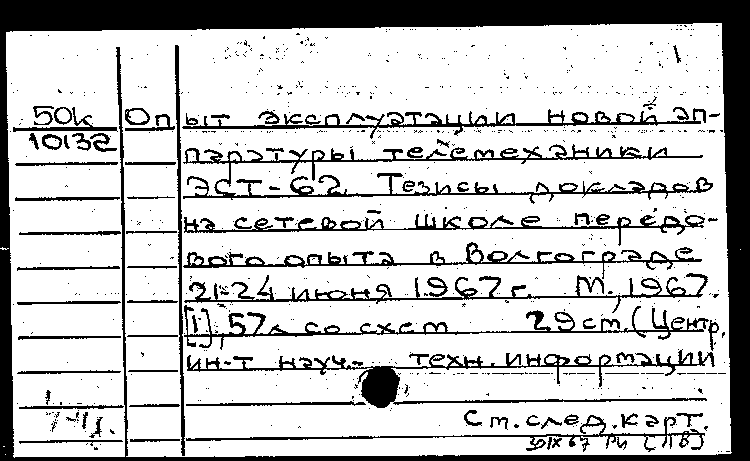 50к Опыт эксплуатации новой ап-
10132 паратуры телемеханики
ЭСТ-62. Тезисы докладов
на сетевой школе передо-
вого опыта в Волгограде
21-24 июня 1967г. М., 1967.
[1], 57л со схем 29 см. (Центр.
ин-т науч.- техн. информации
См. след. карт.